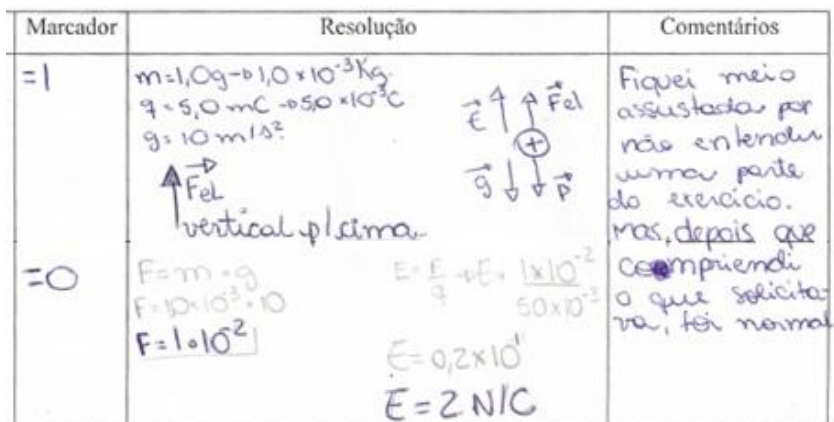 Marcador
Resolução
Comentários
=1
m=1,0g→1,0×10⁻³Kg
q=5,0mC→5,0×10⁻³C
g=10m/s²
F⃗eL
vertical p/cima
E⃗ F⃗el
+
g⃗ P⃗
Fiquei meio
assustada por
não entender
uma parte
do exercício.
Mas, depois que
compriendi
o que solicita-
va, foi normal
=0
F=m·g
F=1,0×10⁻³·10
F=1·10⁻²
E=F/q→E=1×10⁻²/5,0×10⁻³
E=0,2×10¹
E=2N/C